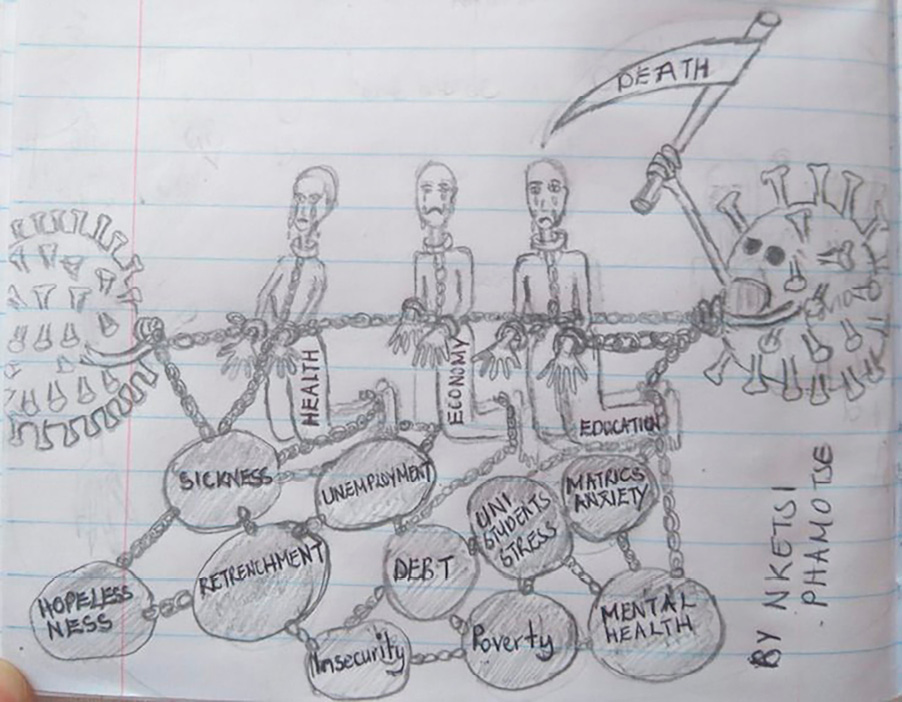 DEATH
HEALTH
ECONOMY
EDUCATION
SICKNESS
UNEMPLOYMENT
UNI
STUDENTS
STRESS
MATRICS
ANXIETY
HOPELESS
NESS
RETRENCHMENT
DEBT
Insecurity
Poverty
MENTAL
HEALTH
BY NKETSI
PHAMOTSE